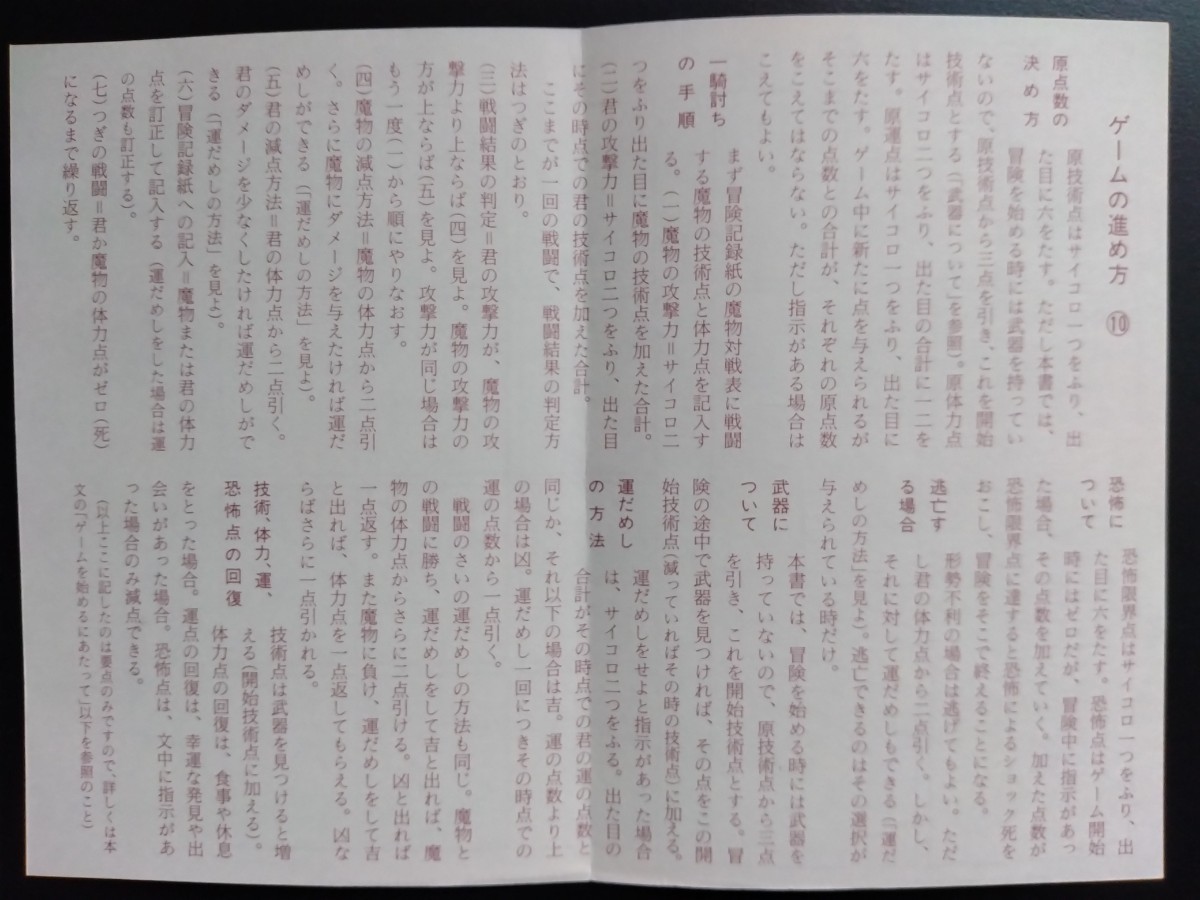 ゲームの進め方 ⑩
原点数の
決め方
原技術点はサイコロ一つをふり、出
た目に六をたす。ただし本書では、
冒険を始める時には武器を持ってい
ないので、原技術点から三点を引き、これを開始
技術点とする(「武器について」を参照)。原体力点
はサイコロ二つをふり、出た目の合計に一二を
たす。原運点はサイコロ一つをふり、出た目に
六をたす。ゲーム中に新たに点を与えられるが
そこまでの点数との合計が、それぞれの原点数
をこえてはならない。ただし指示がある場合は
こえてもよい。
一騎討ち
の手順
まず冒険記録紙の魔物対戦表に戦闘
する魔物の技術点と体力点を記入す
る。(一)魔物の攻撃力=サイコロ二
つをふり出た目に魔物の技術点を加えた合計。
(二)君の攻撃力=サイコロ二つをふり、出た目
にその時点での君の技術点を加えた合計。
ここまでが一回の戦闘で、戦闘結果の判定方
法はつぎのとおり。
(三)戦闘結果の判定=君の攻撃力が、魔物の攻
撃力より上ならば(四)を見よ。魔物の攻撃力の
方が上ならば(五)を見よ。攻撃力が同じ場合は
もう一度(一)から順にやりなおす。
(四)魔物の減点方法=魔物の体力点から二点引
く。さらに魔物にダメージを与えたければ運だ
めしができる(「運だめしの方法」を見よ)。
(五)君の減点方法=君の体力点から二点引く。
君のダメージを少なくしたければ運だめしがで
きる(「運だめしの方法」を見よ)。
(六)冒険記録紙への記入=魔物または君の体力
点を訂正して記入する(運だめしをした場合は運
の点数も訂正する)。
(七)つぎの戦闘=君か魔物の体力点がゼロ(死)
になるまで繰り返す。
恐怖に
ついて
恐怖限界点はサイコロ一つをふり、出
た目に六をたす。恐怖点はゲーム開始
時にはゼロだが、冒険中に指示があっ
た場合、その点数を加えていく。加えた点数が
恐怖限界点に達すると恐怖によるショック死を
おこし、冒険をそこで終えることになる。
逃亡す
る場合
形勢不利の場合は逃げてもよい。ただ
し君の体力点から二点引く。しかし、
それに対して運だめしもできる(「運だ
めしの方法」を見よ)。逃亡できるのはその選択が
与えられている時だけ。
武器に
ついて
本書では、冒険を始める時には武器を
持っていないので、原技術点から三点
を引き、これを開始技術点とする。冒
険の途中で武器を見つければ、その点をこの開
始技術点(減っていればその時の技術点)に加える。
運だめし
の方法
運だめしをせよと指示があった場合
は、サイコロ二つをふる。出た目の
合計がその時点での君の運の点数と
同じか、それ以下の場合は吉。運の点数より上
の場合は凶。運だめし一回につきその時点での
運の点数から一点引く。
戦闘のさいの運だめしの方法も同じ。魔物と
の戦闘に勝ち、運だめしをして吉と出れば、魔
物の体力点からさらに二点引ける。凶と出れば
一点返す。また魔物に負け、運だめしをして吉
と出れば、体力点を一点返してもらえる。凶な
らばさらに一点引かれる。
技術、体力、運、
恐怖点の回復
技術点は武器を見つけると増
える(開始技術点に加える)。
体力点の回復は、食事や休息
をとった場合。運点の回復は、幸運な発見や出
会いがあった場合。恐怖点は、文中に指示があ
った場合のみ減点できる。
(以上ここに記したのは要点のみですので、詳しくは本
文の「ゲームを始めるにあたって」以下を参照のこと)